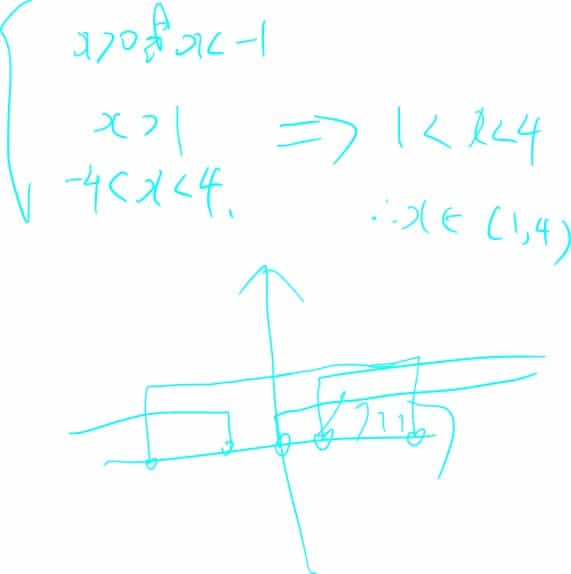 x>0或x<-1
x>1
-4<x<4.
⇒ 1<x<4
∴x∈(1,4)